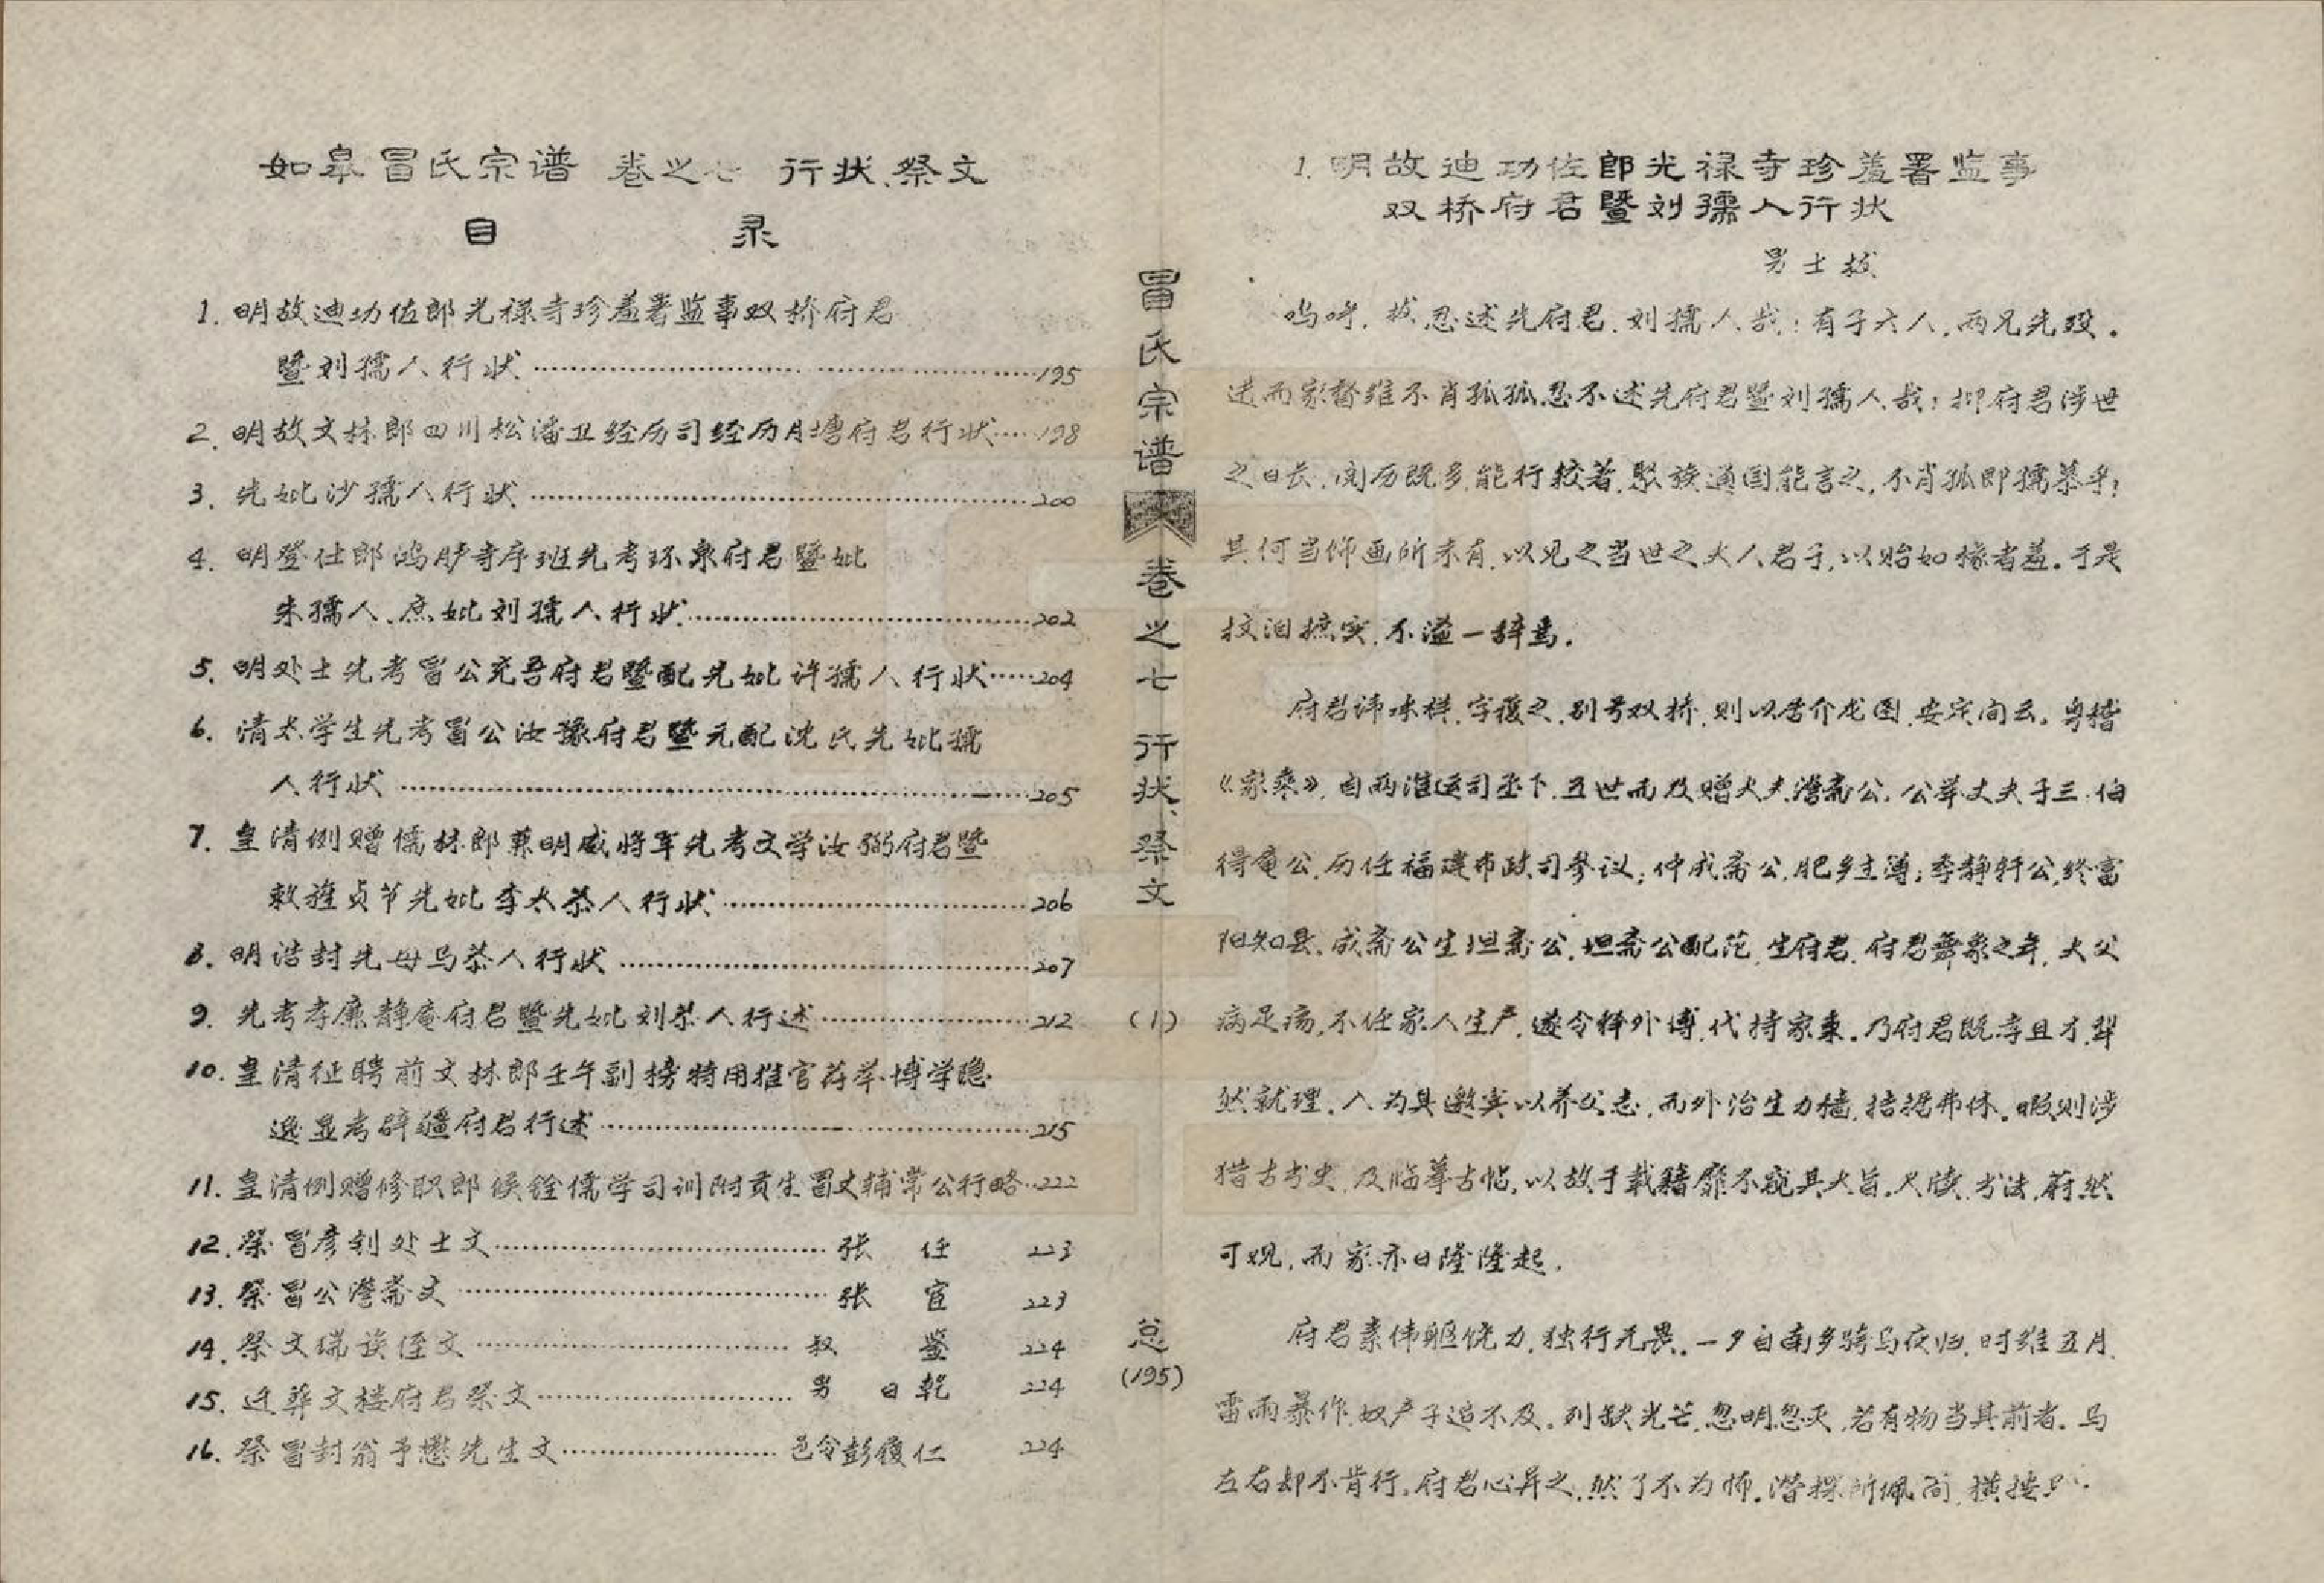 如皋冒氏宗谱 卷之七 行状、祭文
目 录
1. 明故迪功佐郎光禄寺珍羞署监事双桥府君
暨刘孺人行状……195
2. 明故文林郎四川松潘卫经历司经历月塘府君行状……198
3. 先妣沙孺人行状……200
4. 明登仕郎鸿胪寺序班先考环泉府君暨妣
朱孺人、庶妣刘孺人行状……202
5. 明处士先考冒公充吾府君暨配先妣许孺人行状……204
6. 清太学生先考冒公汝豫府君暨元配沈氏先妣孺
人行状……205
7. 皇清例赠儒林郎兼明威将军先考文学汝弼府君暨
敕旌贞节先妣李太恭人行状……206
8. 明诰封先母马恭人行状……207
9. 先考孝廉静庵府君暨先妣刘恭人行述……212
10. 皇清征聘前文林郎壬午副榜特用推官荐举博学隐
逸显考辟疆府君行述……215
11. 皇清例赠修职郎候铨儒学司训附贡生冒丈辅常公行略…222
12. 祭冒彦利处士文……张 任 223
13. 祭冒公澹斋文……张 宦 223
14. 祭文瑞族侄文……叔 鉴 224
15. 迁葬文楼府君祭文……男 日乾 224
16. 祭冒封翁予懋先生文……邑令彭俊仁 224
冒氏宗谱 卷之七 行状、祭文 (1) 总(195)
1. 明故迪功佐郎光禄寺珍羞署监事
双桥府君暨刘孺人行状
男士拔
呜呼，拔忍述先府君、刘孺人哉！有子六人，两兄先殁。
进而家督维不肖孤孤，忍不述先府君暨刘孺人哉！抑府君涉世
之日长，阅历既多，能行较著，聚族通国能言之，不肖孤即孺慕乎！
其何当饰画所未有，以见之当世之大人君子，以贻如椽者羞。于是
抆泪摭实，不溢一辞焉。
府君讳 祥，字 之，别号双桥，则以居介龙图、安定间云。粤稽
《家乘》，自两淮运司丞下，五世而及赠大夫澹斋公，公举丈夫子三，伯
得庵公，历任福建布政司参议；仲成斋公，肥乡主簿；季静轩公，终富
阳知县。成斋公生坦斋公，坦斋公配范，生府君。府君舞象之年，大父
病足疡，不任家人生产，遂令释外傅，代持家秉。乃府君既孝且才，犁
然就理，入为具邀宾以养父志，而外治生力穑，拮据弗休。暇则涉
猎古书史，及临摹古帖，以故于载籍靡不窥其大旨，尺牍、书法，蔚然
可观，而家亦日隆隆起。
府君素伟躯饶力，独行无畏。一夕自南乡骑马夜归，时维五月，
雷雨暴作，奴产子追不及。列缺光芒，忽明忽灭，若有物当其前者。马
左右却不肯行，府君心异之，然了不为怖。潜探所佩 ，横